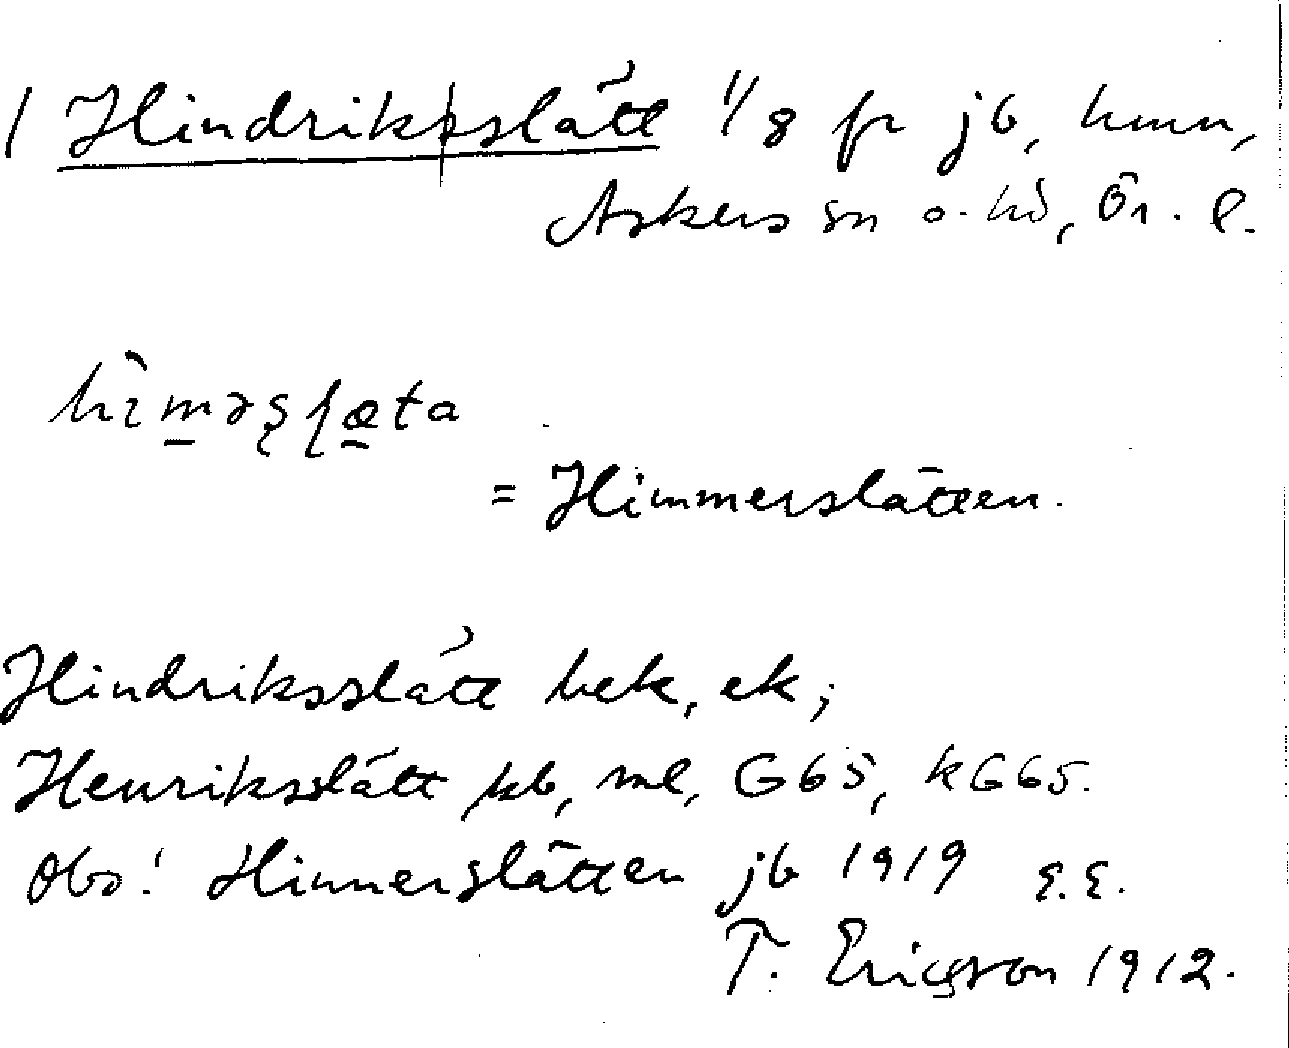 / Hindriksslätt 1/8 fr jb, hmn,
Askers sn o. hd, Ör. l.
hìmərslæta
= Himmerslätten.
Hindriksslätt bek, ek;
Henriksslätt kb, ml, G65, kG65.
Obs! Himmerslätten jb 1919 E.E.
T. Ericsson 1912.